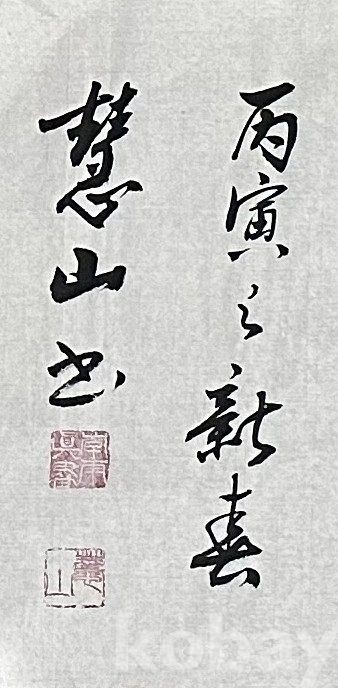 丙寅之新春
慧山书
kobay